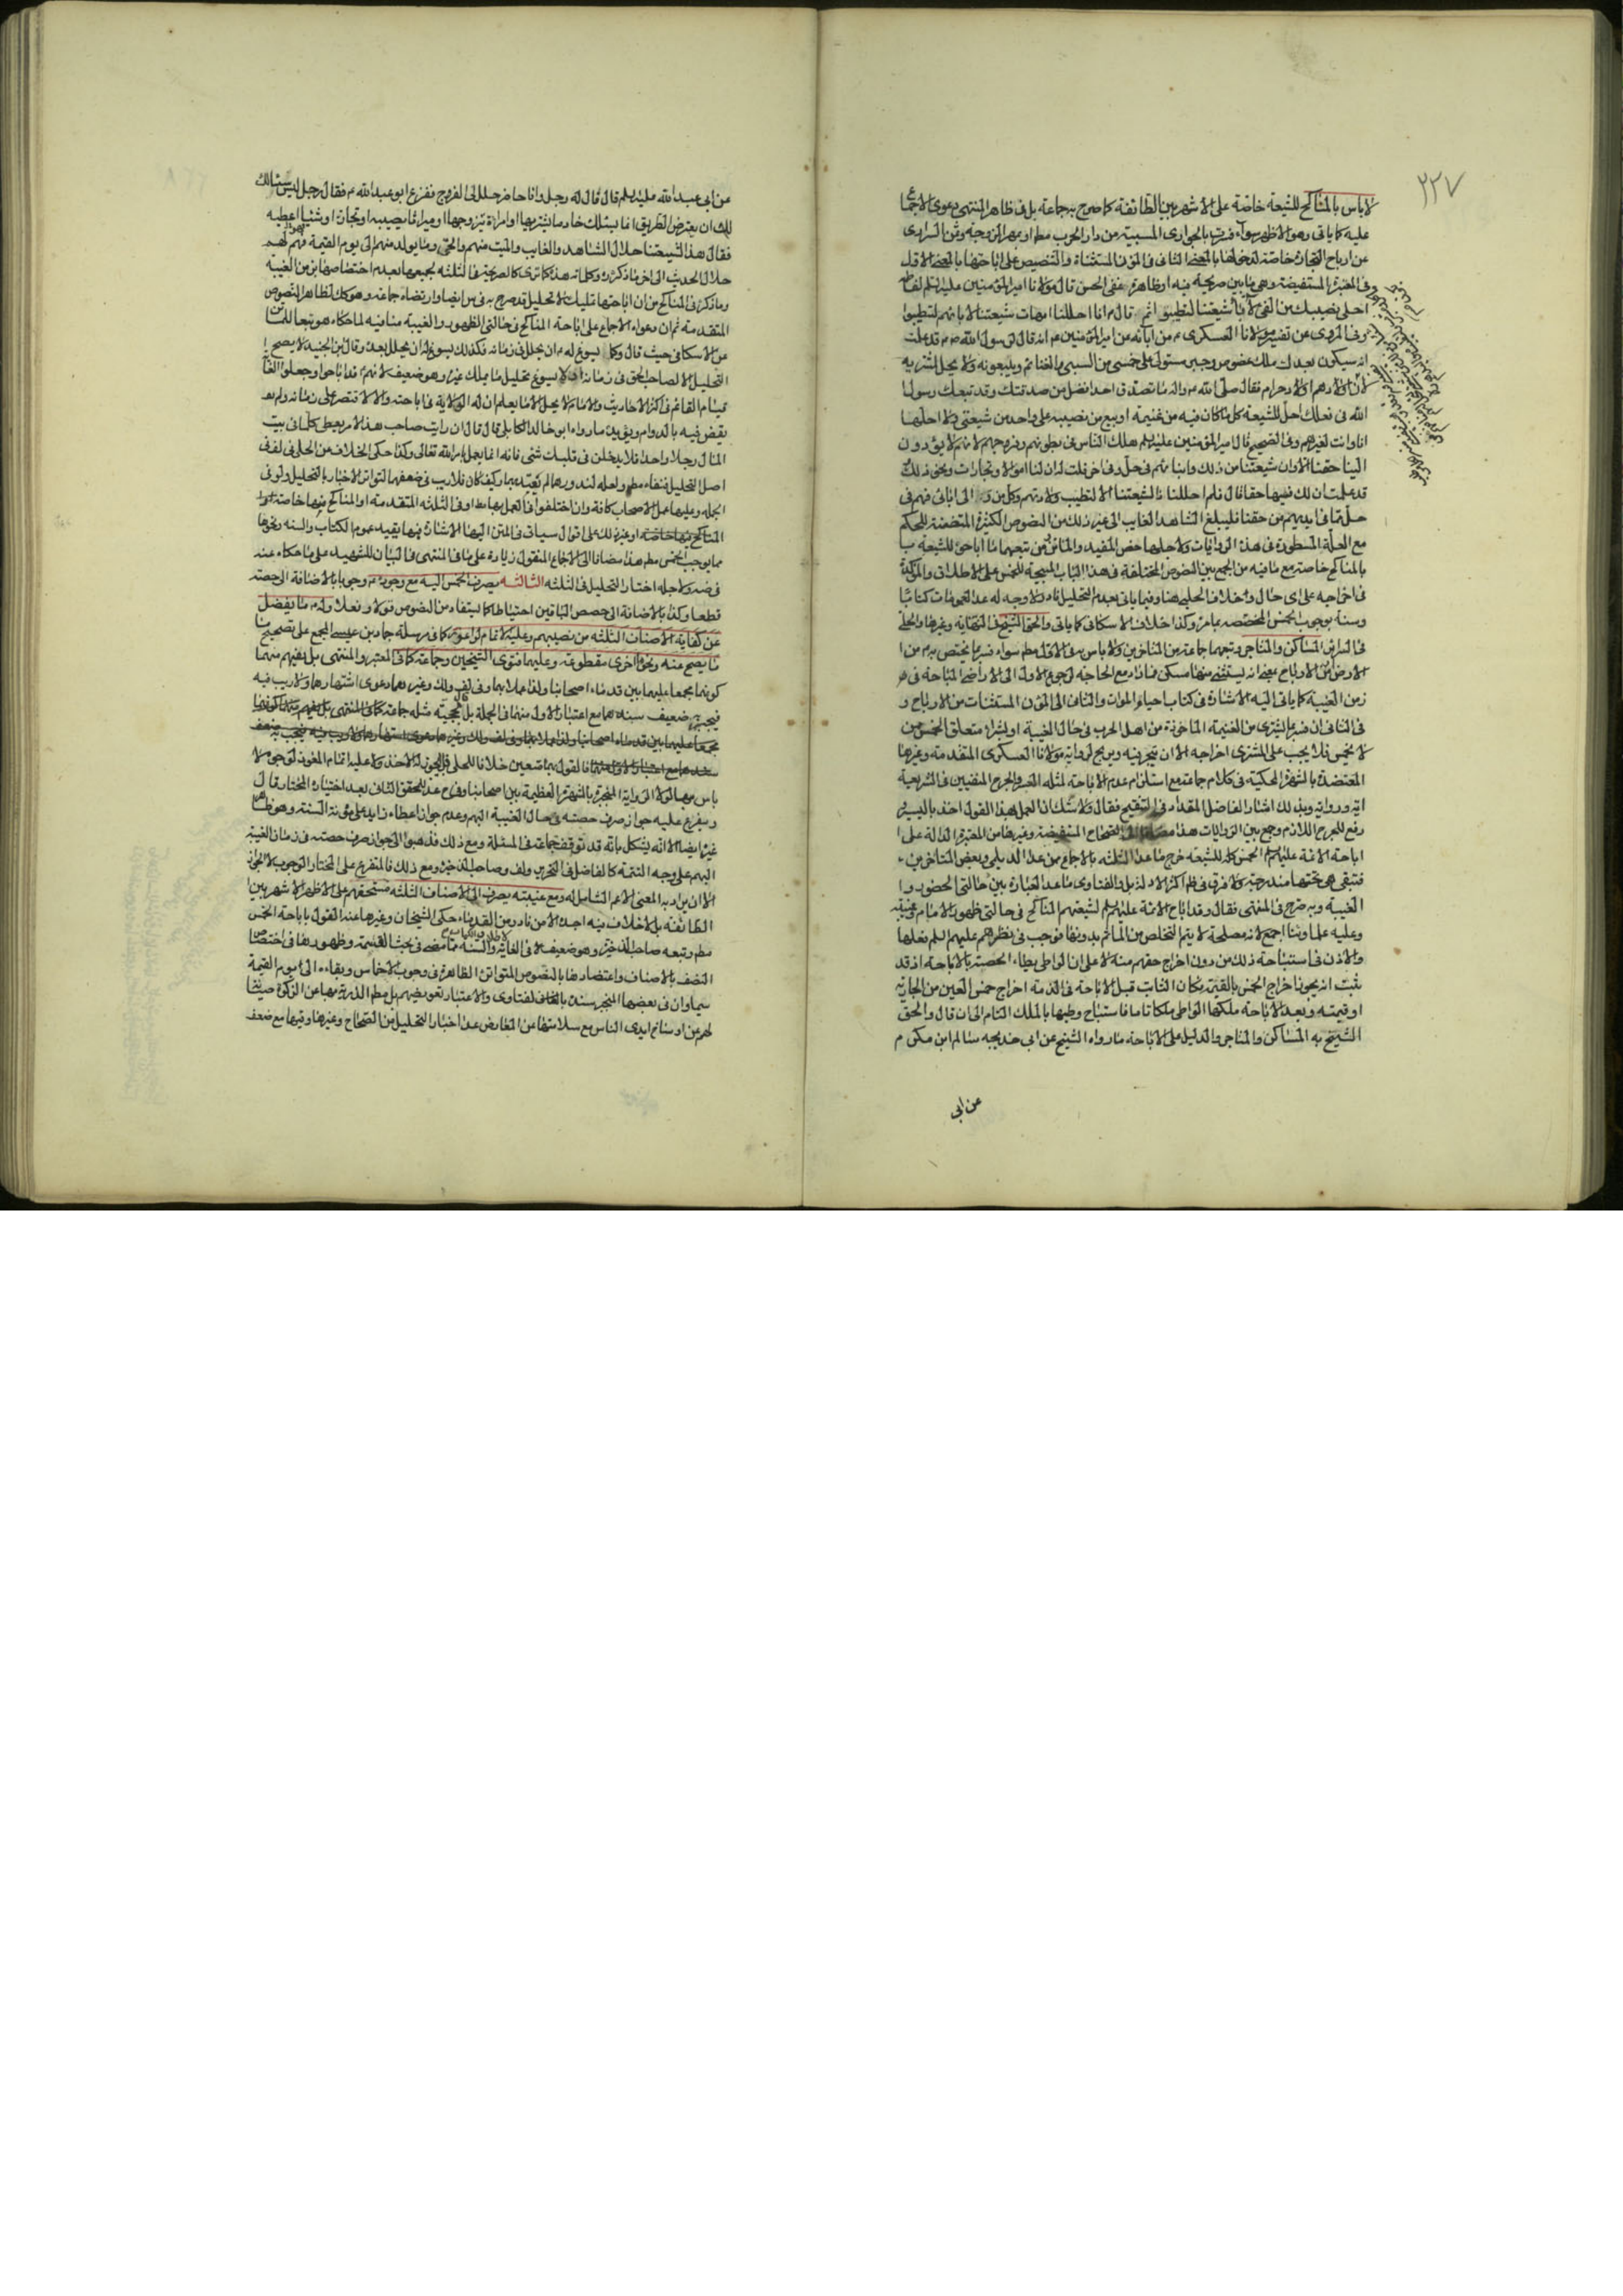 ٢٢٧
لا باس بالمناكح للشيعة خاصة على الاشهر بين الطائفة كما صرح به جماعة بل في ظاهر المنتهى دعوى الاجماع
عليه كما ياتي وهو الاظهر سواء فسرت بالجواري المسبية من دار الحرب مطم او بمهر الزوجة وثمن السراري
من ارباح التجارة خاصة لدخولها بالمعنى الثاني في المؤن المستثناة والتنصيص على اباحتها بالمعنى الاول
وفي المعتبرة المستفيضة وهي ما بين صريحة فيه او ظاهرة ففي الحسن قال مولانا امير المؤمنين عليه السلم لفاطمة
احلي نصيبك من الفيء لآباء شيعتنا ليطيبوا ثم قال انا احللنا امهات شيعتنا لابائهم ليطيبوا
وفي المروي عن تفسير مولانا العسكري ع من ابائه عن امير المؤمنين ع انه قال لرسول الله ص قد علمت
انه سيكون بعدك ملك عضوض وجبر فيستولى على خمسي من السبي والغنائم ويبيعونه ولا يحل لمشتريه
فقال صلى الله عليه واله ما تصدق احد افضل من صدقتك وقد تبعك رسول
الله في فعلك احل للشيعة كل ما كان فيه من غنيمة او بيع من نصيبه على واحد من شيعتي ولا احلها
انا وانت لغيرهم وفي الصحيح قال امير المؤمنين عليه السلم هلك الناس في بطونهم وفروجهم لانهم لا يؤدون
الينا حقنا الا وان شيعتنا من ذلك وابنائهم في حل وفي اخر قلت له ان لنا اموالا وتجارات ونحو ذلك
قد علمت ان لك فيها حقا قال فلم احللنا اذا لشيعتنا الا لتطيب ولادتهم وكل من والى ابائي فهم في
حل مما في ايديهم من حقنا فليبلغ الشاهد الغايب الى غير ذلك من النصوص الكثيرة المتضمنة للحكم
مع العلة المسطورة في هذه الروايات ولاجلها خص المفيد والمتاخرون من تبعهما ما اباحوه للشيعة
بالمناكح خاصة مع ما فيه من الجمع بين النصوص المختلفة في هذا الباب المبيحة للخمس على الاطلاق والمؤكدة
في اخراجه على اي حال وخلاف الحلبي هنا وفيما ياتي بعدم التحليل نادر لا وجه له عدا العمومات كتابا
وسنة بوجوب الخمس المخصصة بما مر وكذا خلاف الاسكافي كما ياتي والحق الشيخ في النهاية وغيرها والحلي
في السرائر المساكن والمتاجر وتبعهما جماعة من المتاخرين ولا باس به في الاول مطم سواء فسر بما يختص به من ا
لارض او من الارباح بمعنى انه يستثنى منها مسكن فما زاد مع الحاجة لرجوع الاول الى الاراضي المباحة في
زمن الغيبة كما ياتي اليه الاشارة في كتاب احياء الموات والثاني الى المؤن المستثنات من الارباح و
في الثاني ان فسر بما يشترى من الغنيمة الماخوذة من اهل الحرب في حال الغيبة او بشراء متعلق الخمس ممن
لا يخمس فلا يجب على المشتري اخراجه الا ان يتجر فيه ويربح لرواية مولانا العسكري المتقدمة وغيرها
المعتضدة بالشهرة المحكية في كلام جماعة مع استلزام عدم الاباحة لمثله العسر والحرج المنفيين في الشريعة
اية ورواية وبذلك اشار الفاضل المقداد في التنقيح فقال ولا شك ان العمل بهذا القول اخذ باليسير
رفع للحرج اللازم وجمع بين الروايات هذا مضافا الى الصحاح المستفيضة وغيرها من المعتبرة الدالة على ا
اباحة الائمة عليهم السلم الخمس كله للشيعة خرج ما عدا الثلثة بالاجماع ممن عدا الديلمي وبعض المتاخرين
فتبقى هي تحتها مندرجة ولا فرق في ظم اكثر الادلة بل والفتاوى ما عدا العبارة بين حالتي الحضور وا
الغيبة وبه صرح في المنتهى فقال وقد اباح الائمة عليهم السلم لشيعتهم المناكح في حالتي ظهور الامام وغيبته
وعليه علماؤنا اجمع لانه مصلحة لا يتم التخلص من المآثم بدونها فوجب في نظرهم عليهم السلم فعلها
والاذن في استباحة ذلك من دون اخراج حقهم منه لا على ان الواطي يطاء الحصة بالاباحة اذ قد
ثبت انه يجوز اخراج الخمس بالقيمة فكان الثابت قبل الاباحة في الذمة اخراج خمس العين من الجارية
او قيمته وبعد الاباحة ملكها الواطي ملكا تاما فاستباح وطيها بالملك التام الى ان قال والحق
الشيخ به المساكن والمتاجر والدليل على الاباحة ما رواه الشيخ عن ابي خديجة سالم ابن مكرم
عن ابي
عن ابي عبد الله عليه السلم قال قال له رجل وانا حاضر حلل لي الفروج ففزع ابو عبد الله ع فقال رجل ليس يسئلك
ان يعترض الطريق انما يسئلك خادما يشتريها او امراة يتزوجها او ميراثا يصيبه او تجارة او شيئا اعطيه
فقال هذا لشيعتنا حلال الشاهد والغايب والميت منهم والحي وما يولد منهم الى يوم القيمة فهو لهم
حلال الحديث الى اخر ما ذكره وكلماته هذه كما ترى كالصريحة في الثلثة بجميعها بعدم اختصاصها بزمن الغيبة
وما ذكره في المناكح من ان اباحتها تمليك لا تحليل قد صرح به في س ايضا وارتضاه جماعة وهو كك لظاهر النصوص
المتقدمة ثم ان دعواه الاجماع على اباحة المناكح في حالتي الظهور والغيبة منافية لما حكاه هو تبعا للشا
عن الاسكافي حيث قال وكما يسوغ له ع ان يحلل في زمانه فكذلك يسوغ له ان يحلل بعده وقال ابن الجنيد لا يصح
التحليل الا لصاحب الحق في زمانه اذ لا يسوغ تحليل ما يملك غيره وهو ضعيف لانهم قد اباحوا وجعلوا الغاية
قيام القائم في اكثر الاحاديث والامام لا يحل الا ما يعلم ان له الولاية في اباحته والا لاقتصر على زمانه ولم
يقض فيه بالدوام ويؤيده ما رواه ابو خالد الكابلي قال قال ان رايت صاحب هذا الامر يعطي كلما في بيت
المال رجلا واحدا فلا يدخلن في قلبك شئ فانه انما يعمل بامر الله تعالى وكذا حكى الخلاف عن الحلبي في لف في
اصل التحليل فنفاه مطم ولعله لندورهما لم يعتد بهما وكيف كان فلا ريب في ضعفهما لتواتر الاخبار بالتحليل ولو في
الجملة وعليها عمل الاصحاب كافة وان اختلفوا في العمل بها مطم او في الثلثة المتقدمة او المناكح منها خاصة
المناكح منها خاصة او غير ذلك على اقوال سياتي في المتن اليها الاشارة فيها يقيد عموم الكتاب والسنة ونحوها
مما يوجب الخمس مطم هذا مضافا الى الاجماع المنقول زيادة على ما في المنتهى في البيان للشهيد على ما حكاه عنه
في ضه ولاجله اختار التحليل في الثلثة الثالثة يصرف الخمس اليه مع وجوده ع وجوبا بالاضافة الى حصته
قطعا وكذا بالاضافة الى حصص الباقين احتياطا كما يستفاد من النصوص قولا وفعلا وله ع ما يفضل
عن كفاية الاصناف الثلثة من نصيبهم وعليه الاتمام لو اعوز كما في مرسلة حماد بن عيسى المجمع على تصحيح
ما يصح عنه ونحوه اخرى مقطوعة وعليهما فتوى الشيخين وجماعة كما في المعتبر والمنتهى بل يفهم منهما
كونهما مجمعا عليهما بين قدماء اصحابنا ولذا عملا بهما وفي لف ولك وغيرهما دعوى اشتهارها ولا ريب فيه
فيجبر ضعيف سندهما مع اعتبار الاول منهما في الجملة بل بحجيته مثله جماعة
فالقول بهما متعين خلافا للحلي فلا يجوز له الاخذ ولا عليه اتمام المعوز لوجوه لا
باس بها لولا الرواية المنجبرة بالشهرة العظيمة بين اصحابنا وفرع عدا المحقق الثاني بعد اختياره المختار قال
ويتفرع عليه جواز صرف حصته في حال الغيبة اليهم وعدم جواز اعطاء زايد على مؤنة السنة وهو ظاهر
غيره ايضا الا انه يشكل بانه قد توقف جماعة في المسئلة ومع ذلك فذهبوا الى جواز صرف حصته في زمان الغيبة
اليهم على وجه التتمة كالفاضل في التحرير ولف وصاحب الذخيرة ومع ذلك فالمتفرع على المختار الوجوب لا الجواز
الا ان يريد به المعنى الاعم الشامل له ومع غيبته يصرف الى الاصناف الثلثة مستحقهم على الاظهر الاشهر بين ا
الطائفة بل لا خلاف فيه اجده الا من نادر من القدماء حكى الشيخان وغيرهما عنه القول باباحة الخمس
مطم وتبعه صاحب الذخيرة وهو ضعيف في الغاية والسنة مما مضى في بحث القسمة وظهورها في اختصاص
النصف بالاصناف واعتضادها بالنصوص المتواترة الظاهرة في وجوب الاخماس وبقائه الى يوم القيمة
سيما وان في بعضها المنجبر سنده بالفتاوى والاعتبار تعويضهم بل مطم الذرية بها عن الزكوة صيانة
لهم عن اوساخ ايدي الناس مع سلامتها عن المعارض عدا اخبار التحليل من الصحاح وغيرها وفيها مع ضعف